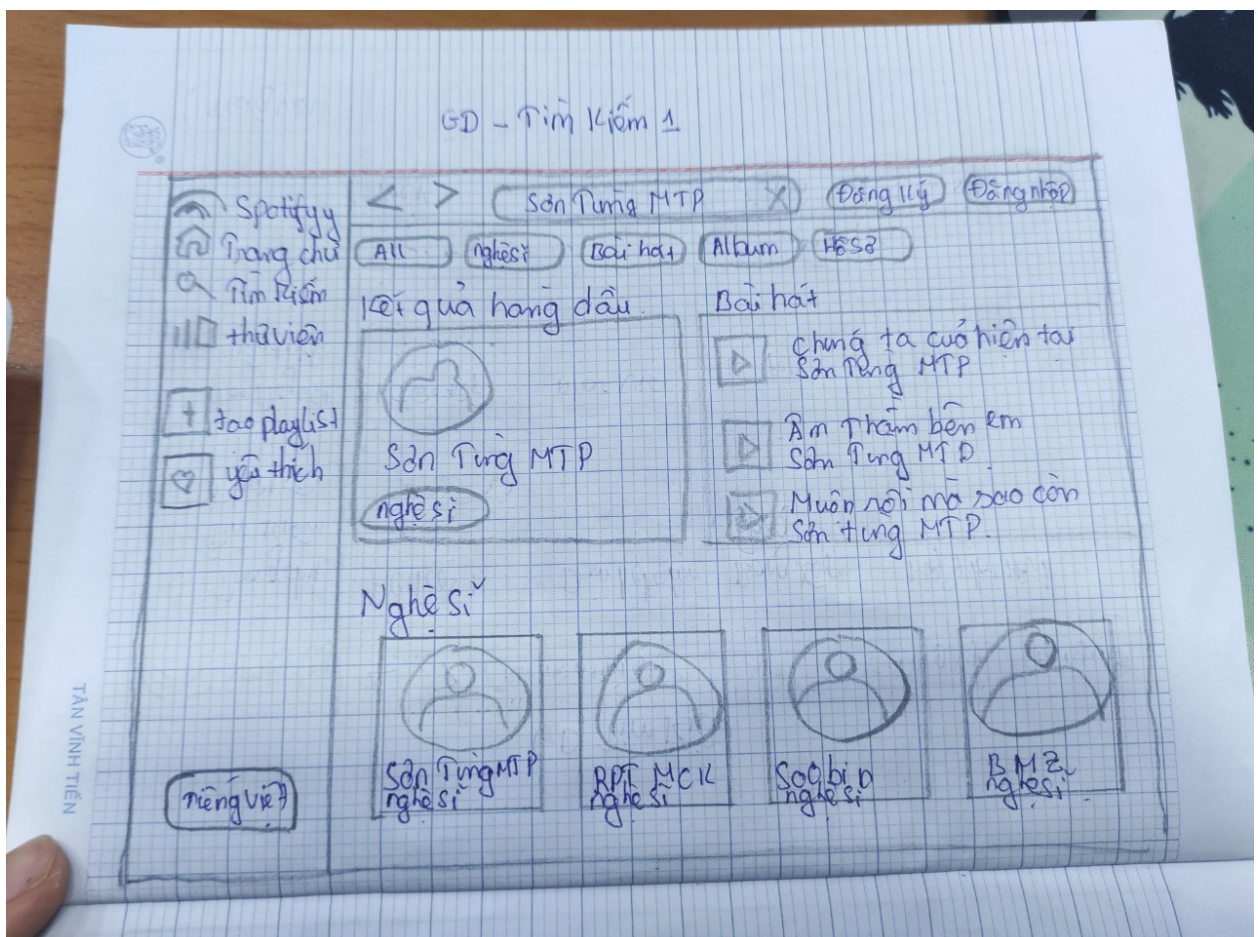 GD - Tìm Kiếm 1
Spotifyy
Trang chủ
Tìm Kiếm
thư viện
tạo playlist
yêu thích
Tiếng Việt
< >
Sơn Tùng MTP X
Đăng ký
Đăng nhập
All
nghệ sĩ
Bài hát
Album
Hồ sơ
Kết quả hang đầu
Sơn Tùng MTP
nghệ sĩ
Bài hát
chúng ta của hiện tại
Sơn Tùng MTP
Âm Thầm bên em
Sơn Tùng MTP
Muộn rồi mà sao còn
Sơn tung MTP.
Nghệ sĩ
Sơn Tùng MTP
nghệ sĩ
RPT MCK
nghệ sĩ
Soobin
nghệ sĩ
BMZ
nghệ sĩ
TÂN VĨNH TIẾN